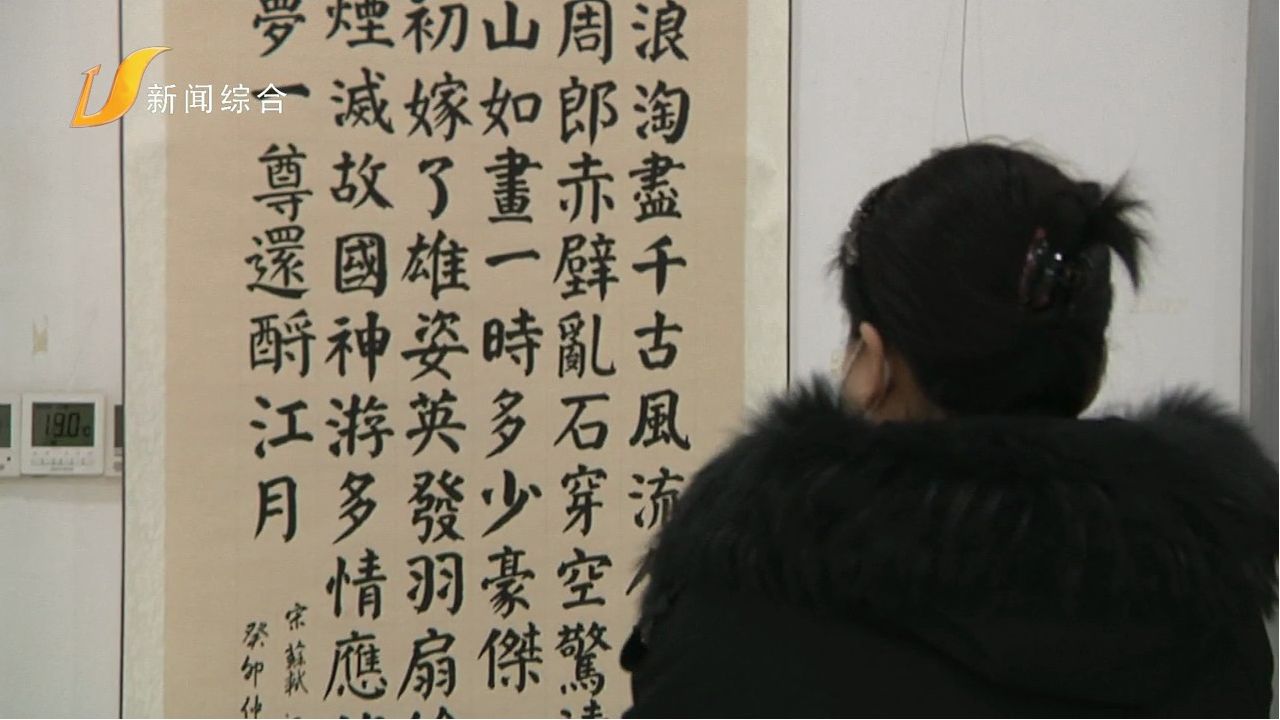 新闻综合
浪淘盡千古風流
周郎赤壁亂石穿空驚濤
山如畫一時多少豪傑
初嫁了雄姿英發羽扇綸
煙滅故國神游多情應
夢一尊還酹江月
宋蘇軾
癸卯仲
19.0c